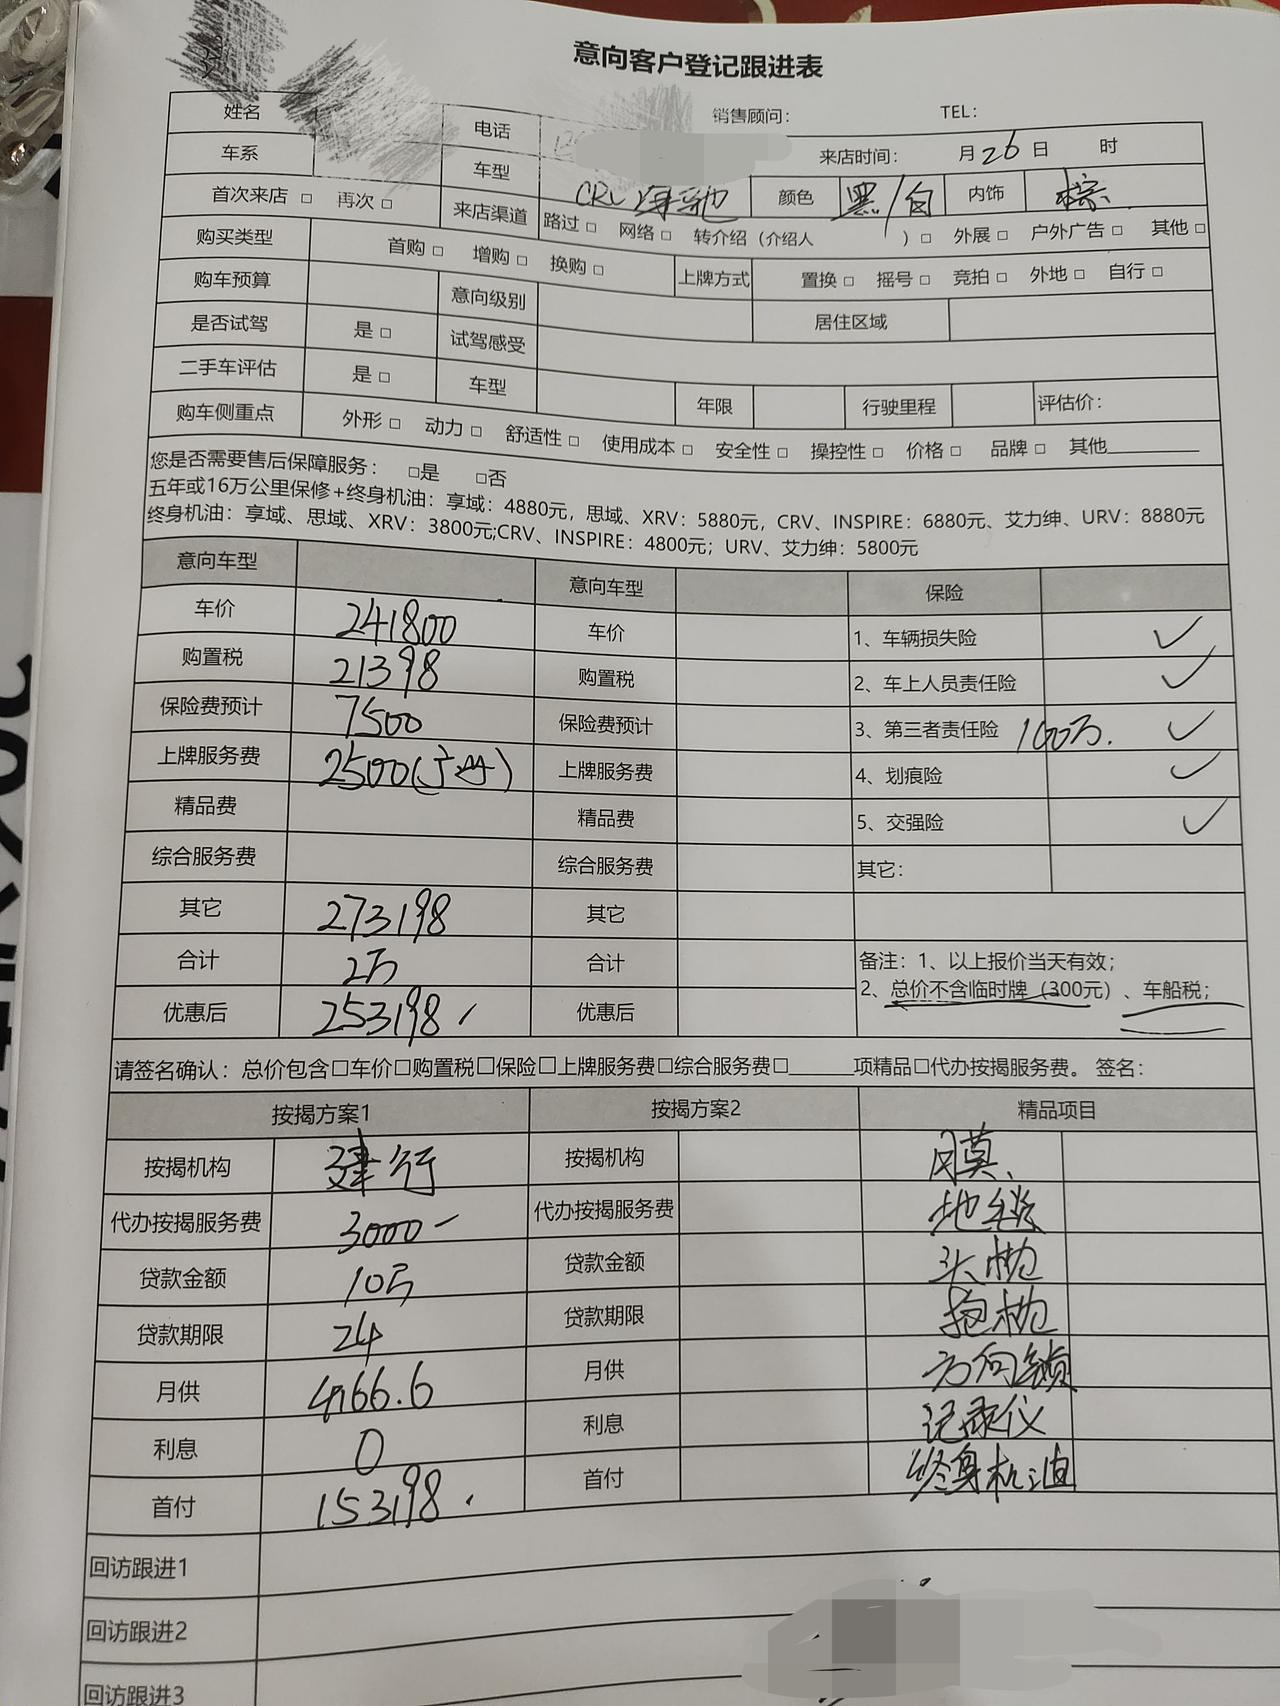 意向客户登记跟进表
姓名 电话 销售顾问： TEL：
车系 车型 CRV 净驰 来店时间： 月26日 时
颜色 黑/白 内饰 棕
首次来店 □ 再次 □ 来店渠道 路过 □ 网络 □ 转介绍（介绍人 ）□ 外展 □ 户外广告 □ 其他 □
购买类型 首购 □ 增购 □ 换购 □ 上牌方式 置换 □ 摇号 □ 竞拍 □ 外地 □ 自行 □
购车预算 意向级别 居住区域
是否试驾 是 □ 试驾感受
二手车评估 是 □ 车型 年限 行驶里程 评估价：
购车侧重点 外形 □ 动力 □ 舒适性 □ 使用成本 □ 安全性 □ 操控性 □ 价格 □ 品牌 □ 其他
您是否需要售后保障服务： □是 □否
五年或16万公里保修+终身机油：享域：4880元，思域、XRV：5880元，CRV、INSPIRE：6880元、艾力绅、URV：8880元
终身机油：享域、思域、XRV：3800元;CRV、INSPIRE：4800元；URV、艾力绅：5800元
意向车型 意向车型 保险
车价 241800 车价 1、车辆损失险 ✓
购置税 21398 购置税 2、车上人员责任险 ✓
保险费预计 7500 保险费预计 3、第三者责任险 100万. ✓
上牌服务费 2500(广州) 上牌服务费 4、划痕险 ✓
精品费 精品费 5、交强险 ✓
综合服务费 综合服务费 其它：
其它 273198 其它
合计 2万 合计 备注：1、以上报价当天有效；
优惠后 253198 优惠后 2、总价不含临时牌（300元）、车船税；
请签名确认：总价包含□车价□购置税□保险□上牌服务费□综合服务费□______项精品□代办按揭服务费。 签名：
按揭方案1 按揭方案2 精品项目
按揭机构 建行 按揭机构 膜、
代办按揭服务费 3000 代办按揭服务费 地毯
贷款金额 10万 贷款金额 头枕
贷款期限 24 贷款期限 抱枕
月供 4166.6 月供 方向锁
利息 0 利息 记录仪
首付 153198 首付 终身机油
回访跟进1
回访跟进2
回访跟进3